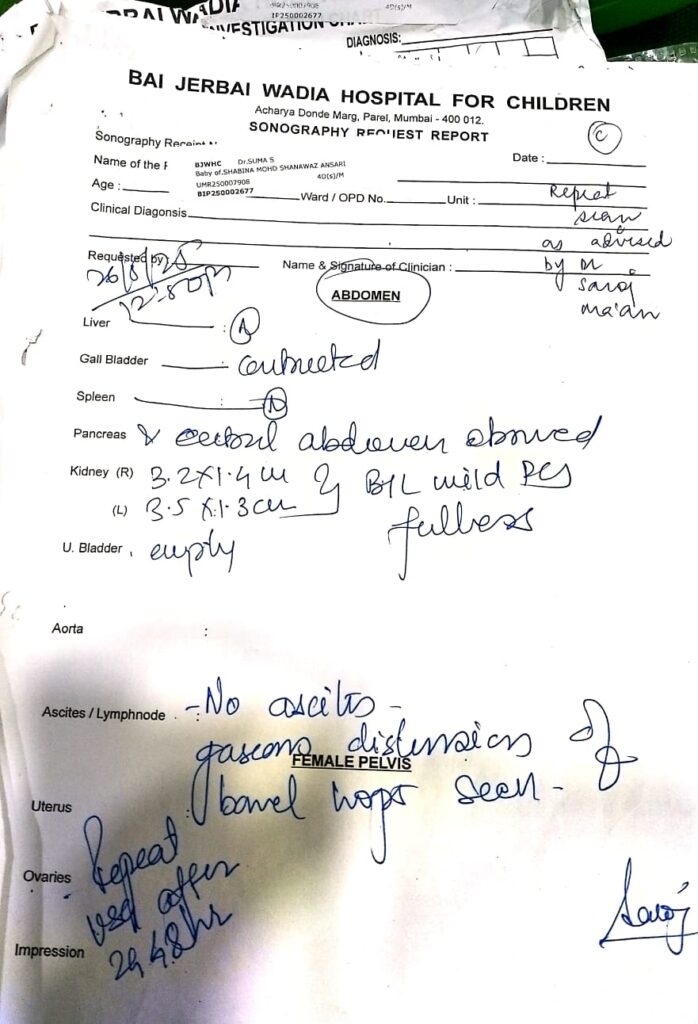 BAI WADIA
INVESTIGATION
BIP250002677
4D(s)/M
DIAGNOSIS:
BAI JERBAI WADIA HOSPITAL FOR CHILDREN
Acharya Donde Marg, Parel, Mumbai - 400 012.
SONOGRAPHY REQUEST REPORT
C
Sonography Receipt
Date :
Name of the
BJWHC Dr.SUMA S
Baby of.SHABINA MOHD SHANAWAZ ANSARI
4D(s)/M
UMR250007908
BIP250002677
Age :
Ward / OPD No. Unit :
Repeat
scan
as advised
by Dr.
Saroj
ma'an
Clinical Diagonsis
Requested by
26/8/25
Name & Signature of Clinician :
ABDOMEN
Liver : N
Gall Bladder contracted
Spleen N
Pancreas & central abdomen obscured
Kidney (R) 3.2 X 1.4 cm } B/L mild PCS
(L) 3.5 X 1.3 cm fullness
U. Bladder . empty
Aorta :
Ascites / Lymphnode : - No ascites -
gaseous distension of
FEMALE PELVIS
Uterus : bowel loops seen -
Ovaries
Repeat
USG after
24-48hr
Impression
Saroj